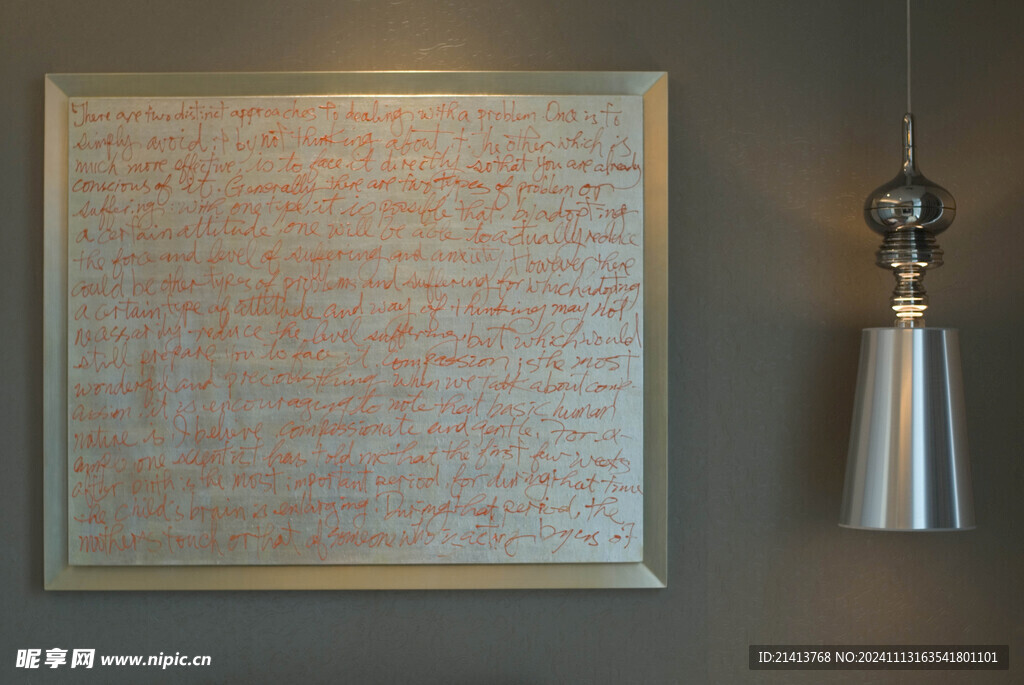 "There are two distinct approaches to dealing with a problem. Once is to
simply avoid it by not thinking about it. The other which is
much more effective, is to face it directly so that you are already
conscious of it. Generally there are two types of problem or
suffering. with one type, it is possible that by adopting
a certain attitude, one will be able to actually reduce
the force and level of suffering and anxiety. However there
could be other types of problems and suffering for which adopting
a certain type of attitude and way of thinking may not
necessarily reduce the level suffering but which would
still prepare you to face it. compassion is the most
wonderful and precious thing. when we talk about comp-
assion, it is encouraging to note that basic human
nature is, I believe, compassionate and gentle. For
one scientist has told me that the first few weeks
after birth is the most important period, for during that time
the child's brain is enlarging. During that period, the
mother's touch or that of someone who is acting
昵享网 www.nipic.cn
ID:21413768 NO:20241113163541801101